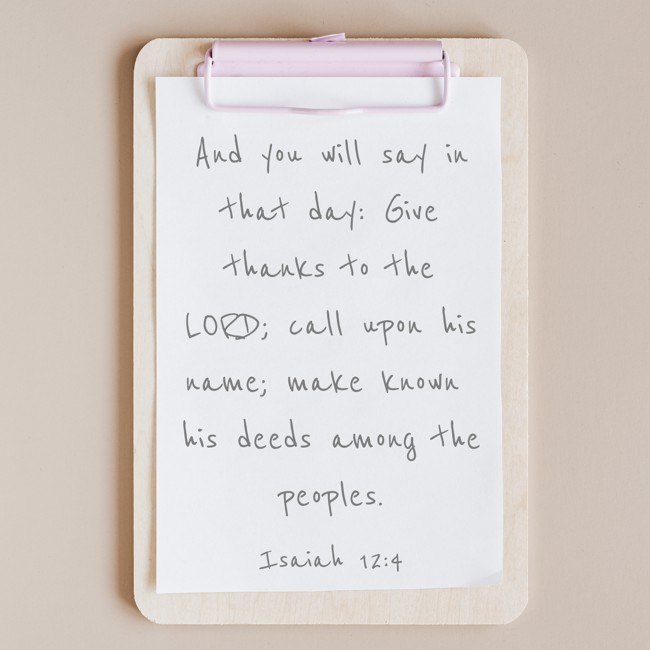 And you will say in
that day: Give
thanks to the
LORD; call upon his
name; make known
his deeds among the
peoples.
Isaiah 12:4